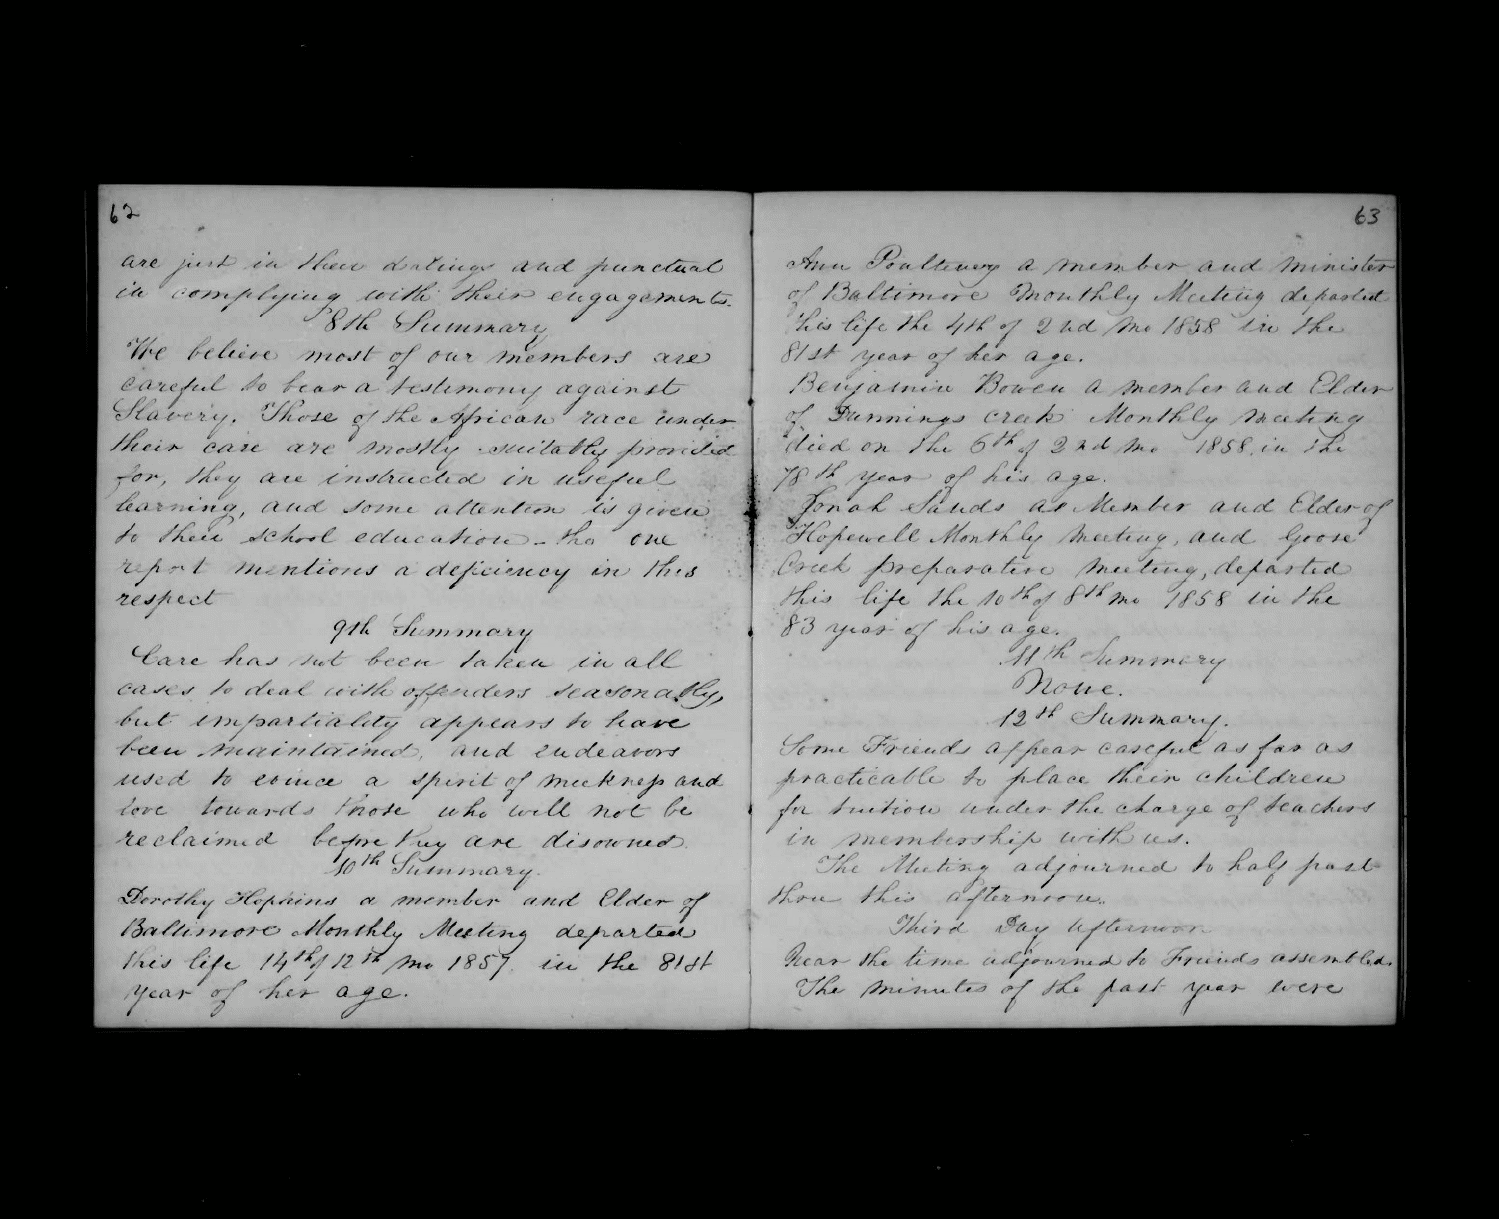 62
are just in their dealings and punctual
in complying with their engagements.
8th Summary
We believe most of our members are
careful to bear a testimony against
Slavery. Those of the African race under
their care are mostly suitably provided
for, they are instructed in useful
learning, and some attention is given
to their school education - tho one
report mentions a deficiency in this
respect
9th Summary
Care has not been taken in all
cases to deal with offenders seasonably,
but impartiality appears to have
been maintained, and endeavors
used to evince a spirit of meekness and
love towards those who will not be
reclaimed before they are disowned.
10th Summary.
Dorothy Hopkins a member and Elder of
Baltimore Monthly Meeting departed
this life 14th of 12th mo 1857. in the 81st
year of her age.
63
Ann Poultney a member and minister
of Baltimore Monthly Meeting departed
this life the 4th of 2nd mo 1858 in the
81st year of her age.
Benjamin Bowen a member and Elder
of Dunnings creek Monthly meeting
died on the 6th of 2nd mo 1858, in the
78th year of his age.
Jonah Sands a Member and Elder of
Hopewell Monthly meeting, and Goose
Creek preparative meeting, departed
this life the 10th of 8th mo 1858 in the
83 year of his age.
11th Summary
None.
12th Summary.
Some Friends appear careful as far as
practicable to place their children
for tuition under the charge of teachers
in membership with us.
The Meeting adjourned to half past
three this afternoon.
Third Day afternoon
Near the time adjourned to Friends assembled.
The minutes of the past year were